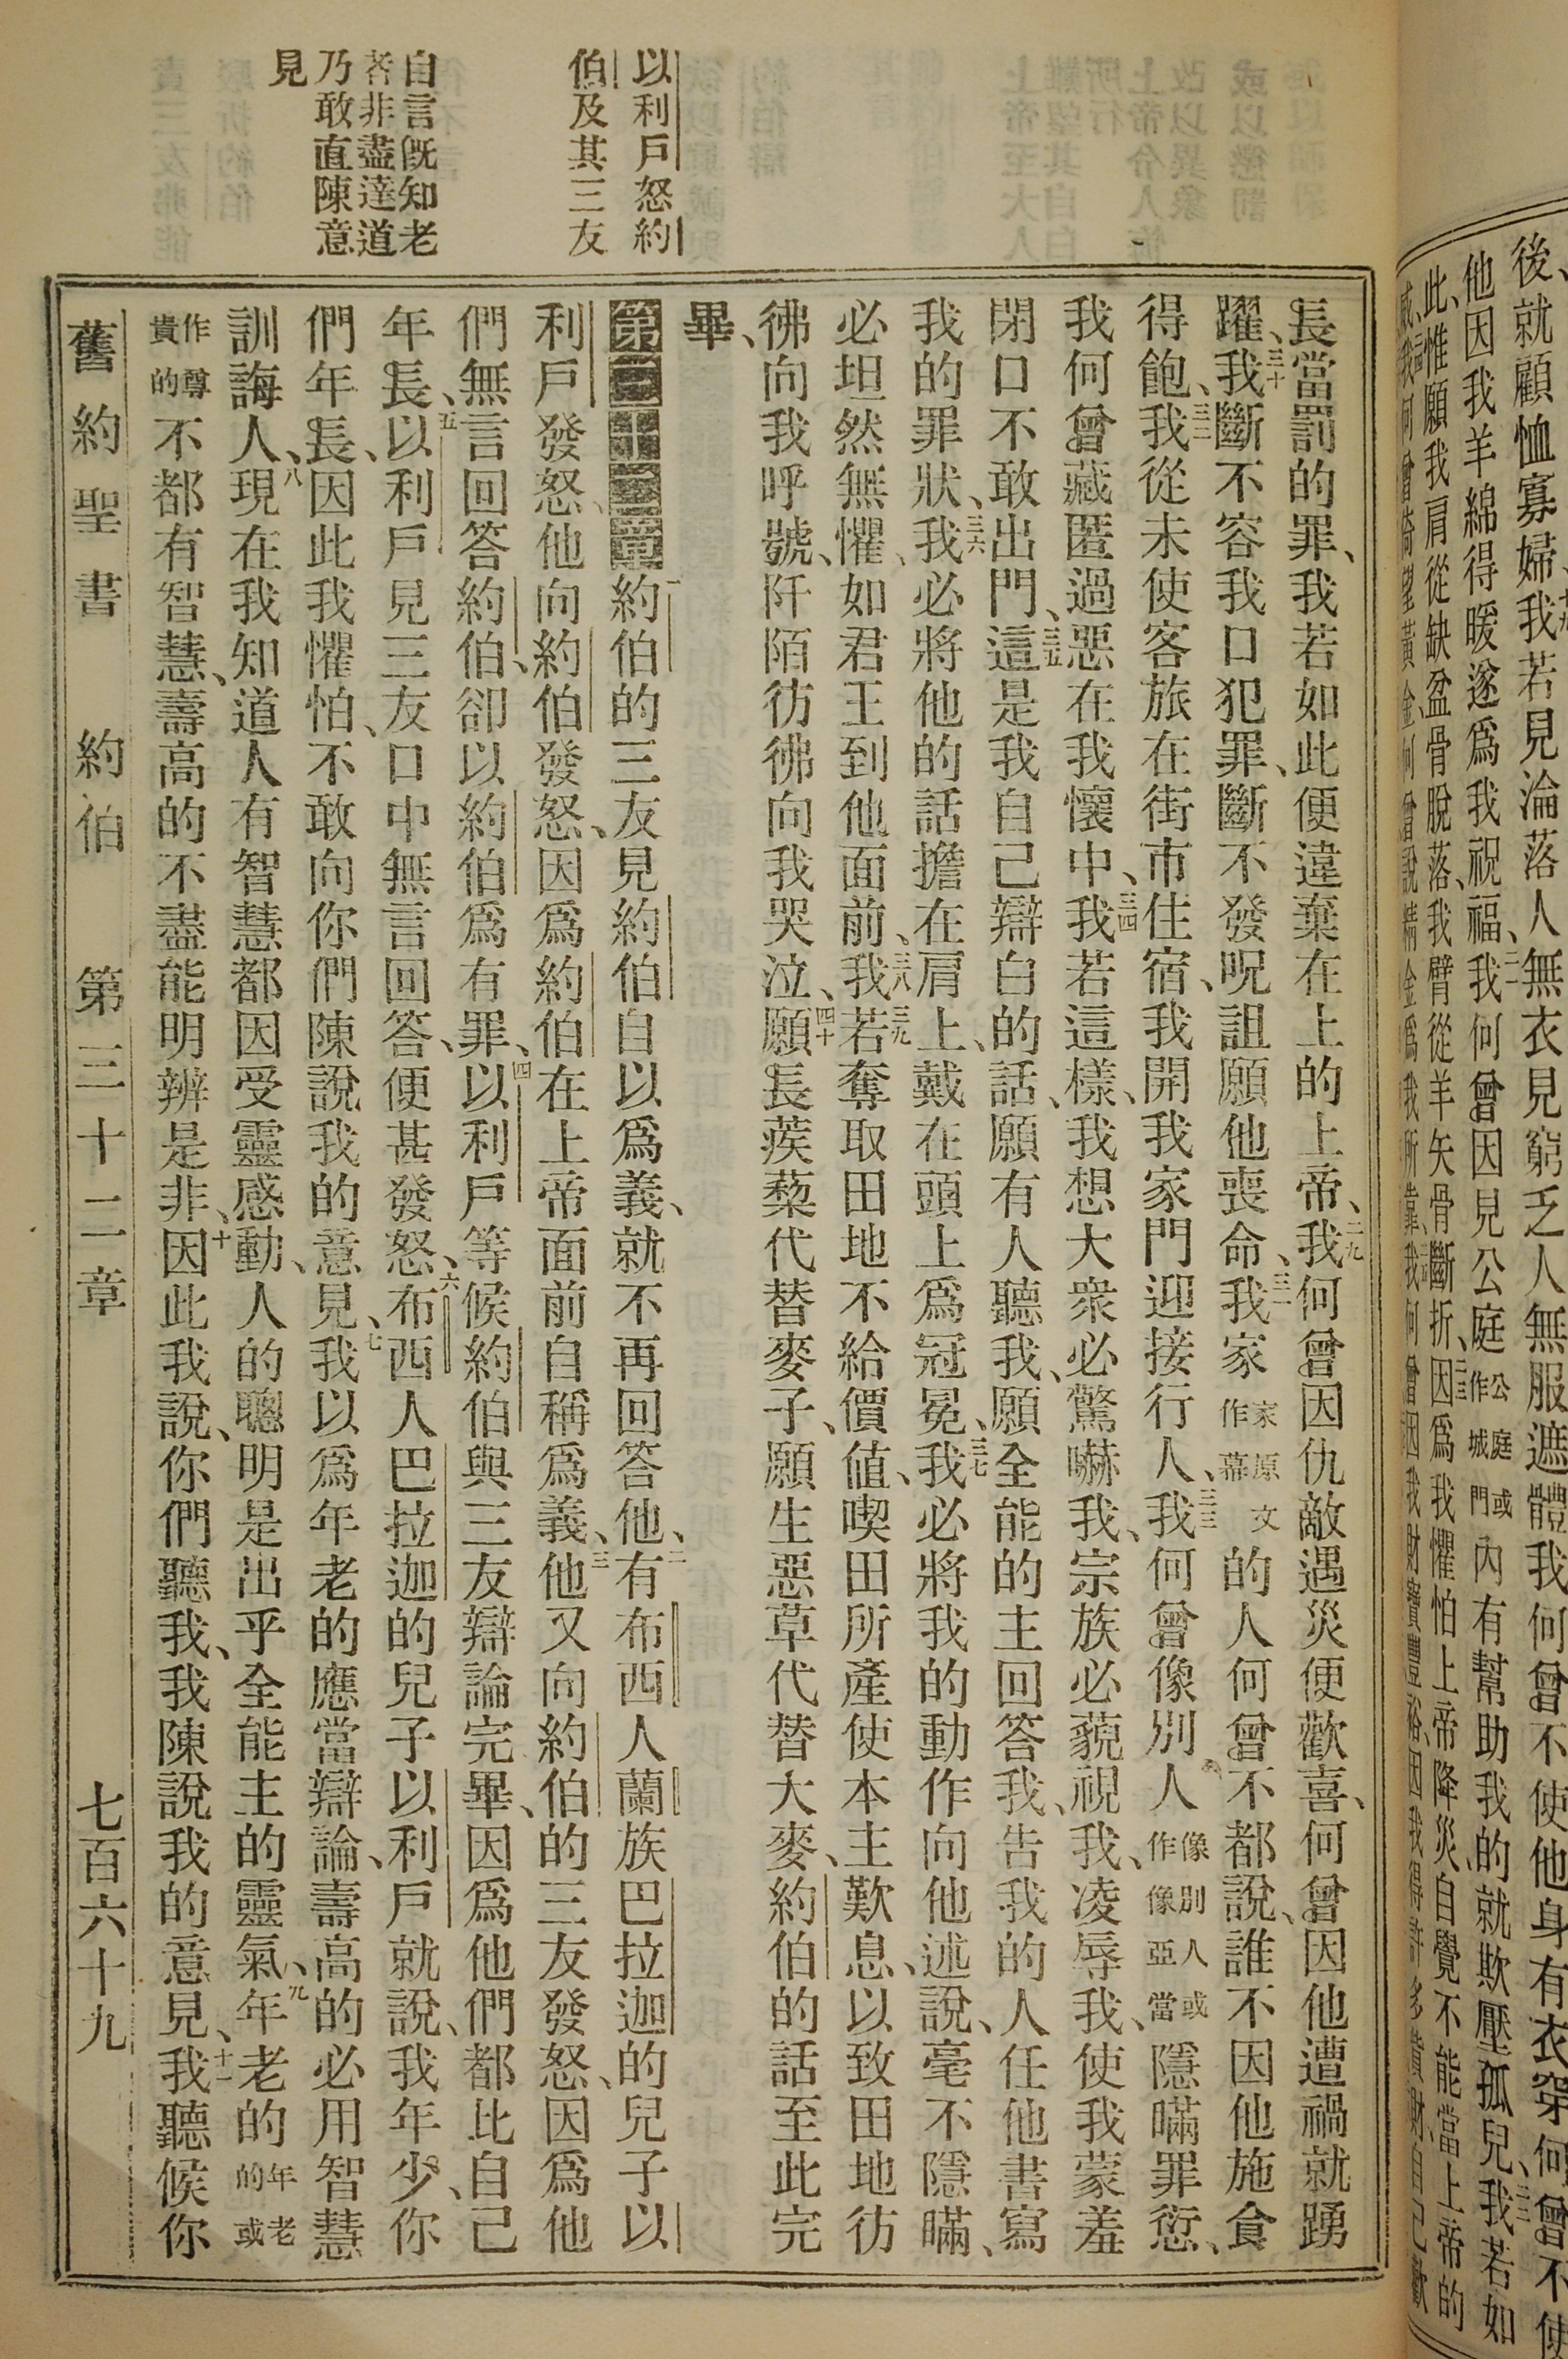 後、就顧恤寡婦、十九我若見淪落人無衣見窮乏人無服遮體我何曾不使他身有衣穿何曾不使
他因我羊綿得暖遂爲我祝福、二一我何曾因見公庭公庭或作城門內有幫助我的就欺壓孤兒、二二我若如
此、惟願我肩從缺盆骨脫落、我臂從羊矢骨斷折、二三因爲我懼怕上帝降災、自覺不能當上帝的
威、我何曾倚望黃金、何曾說精金爲我所靠、我何曾因我財寶豐裕、因我得許多貲財、自己歡
以利戶怒約
伯及其三友
自言旣知老
者非盡達道
乃敢直陳意
見
長當罰的罪、我若如此便違棄在上的上帝、二九我何曾因仇敵遇災便歡喜、何曾因他遭禍就踴
躍、三十我斷不容我口犯罪、斷不發呪詛願他喪命、三一我家家原文作幕的人何曾不都說、誰不因他施食
得飽、三二我從未使客旅在街市住宿、我開我家門迎接行人、三三我何曾像別人像別人或作像亞當隱瞞罪愆、
我何曾藏匿過惡在我懷中、三四我若這樣、我想大衆必驚嚇我、宗族必藐視我、凌辱我、使我蒙羞
閉口不敢出門、三五這是我自己辯白的話、願有人聽我、願全能的主回答我、告我的人任他書寫
我的罪狀、三六我必將他的話擔在肩上、戴在頭上爲冠冕、三七我必將我的動作向他述說、毫不隱瞞、
必坦然無懼、如君王到他面前、三八我三九若奪取田地不給價値、喫田所產使本主歎息、以致田地彷
彿向我呼號、阡陌彷彿向我哭泣、四十願長蒺藜代替麥子、願生惡草代替大麥、約伯的話至此完
畢、
第三十二章一約伯的三友見約伯自以爲義、就不再回答他、二有布西人蘭族巴拉迦的兒子以
利戶發怒、他向約伯發怒、因爲約伯在上帝面前自稱爲義、三他又向約伯的三友發怒、因爲他
們無言回答約伯、卻以約伯爲有罪、四以利戶等候約伯與三友辯論完畢、因爲他們都比自己
年長、五以利戶見三友口中無言回答、便甚發怒、六布西人巴拉迦的兒子以利戶就說、我年少、你
們年長、因此我懼怕、不敢向你們陳說我的意見、七我以爲年老的應當辯論、壽高的必用智慧
訓誨人、八現在我知道人有智慧都因受靈感動、人的聰明是出乎全能主的靈氣、九年老的年老的或
作尊貴的不都有智慧、壽高的不盡能明辨是非、十因此我說、你們聽我、我陳說我的意見、十一我聽候你
舊約聖書 約伯 第三十二章 七百六十九